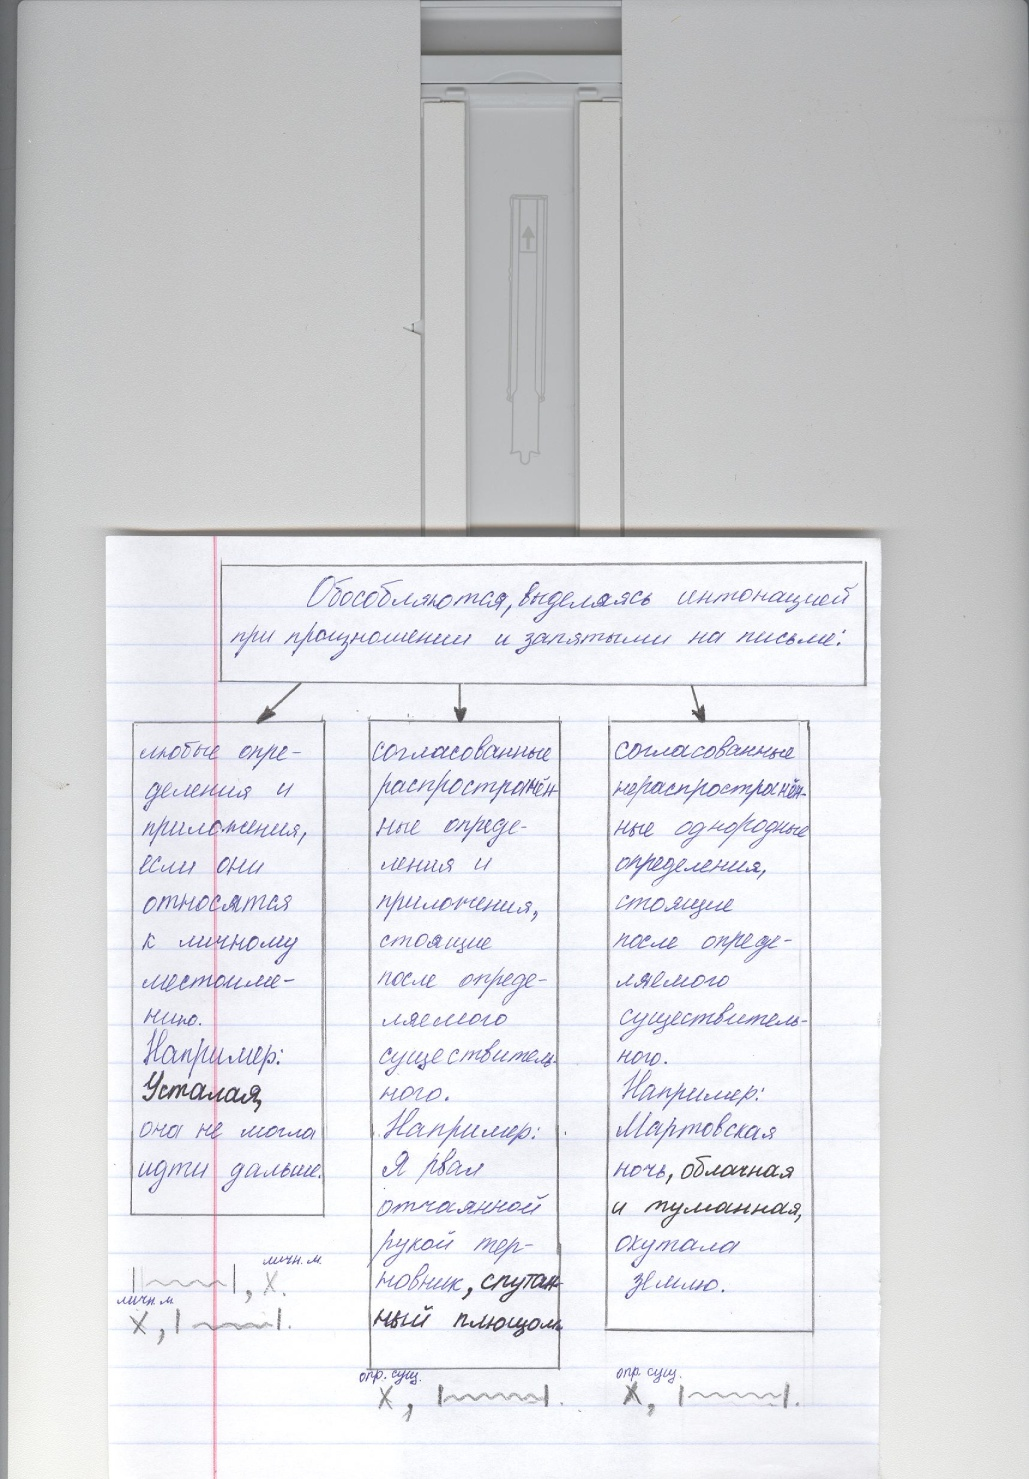 Обособляются, выделяясь интонацией
при произношении и запятыми на письме:
любые опре-
деления и
приложения,
если они
относятся
к личному
местоиме-
нию.
Например:
Усталая,
она не могла
идти дальше.
личн. м.
|~~~|, X.
личн. м.
X, |~~~|.
согласованные
распространён-
ные опреде-
ления и
приложения,
стоящие
после опреде-
ляемого
существитель-
ного.
Например:
Я рвал
отчаянной
рукой тер-
новник, спутан-
ный плющом.
опр. сущ.
X, |~~~|.
согласованные
нераспространён-
ные однородные
определения,
стоящие
после опреде-
ляемого
существитель-
ного.
Например:
Мартовская
ночь, облачная
и туманная,
окутала
землю.
опр. сущ.
X, |~~~|.